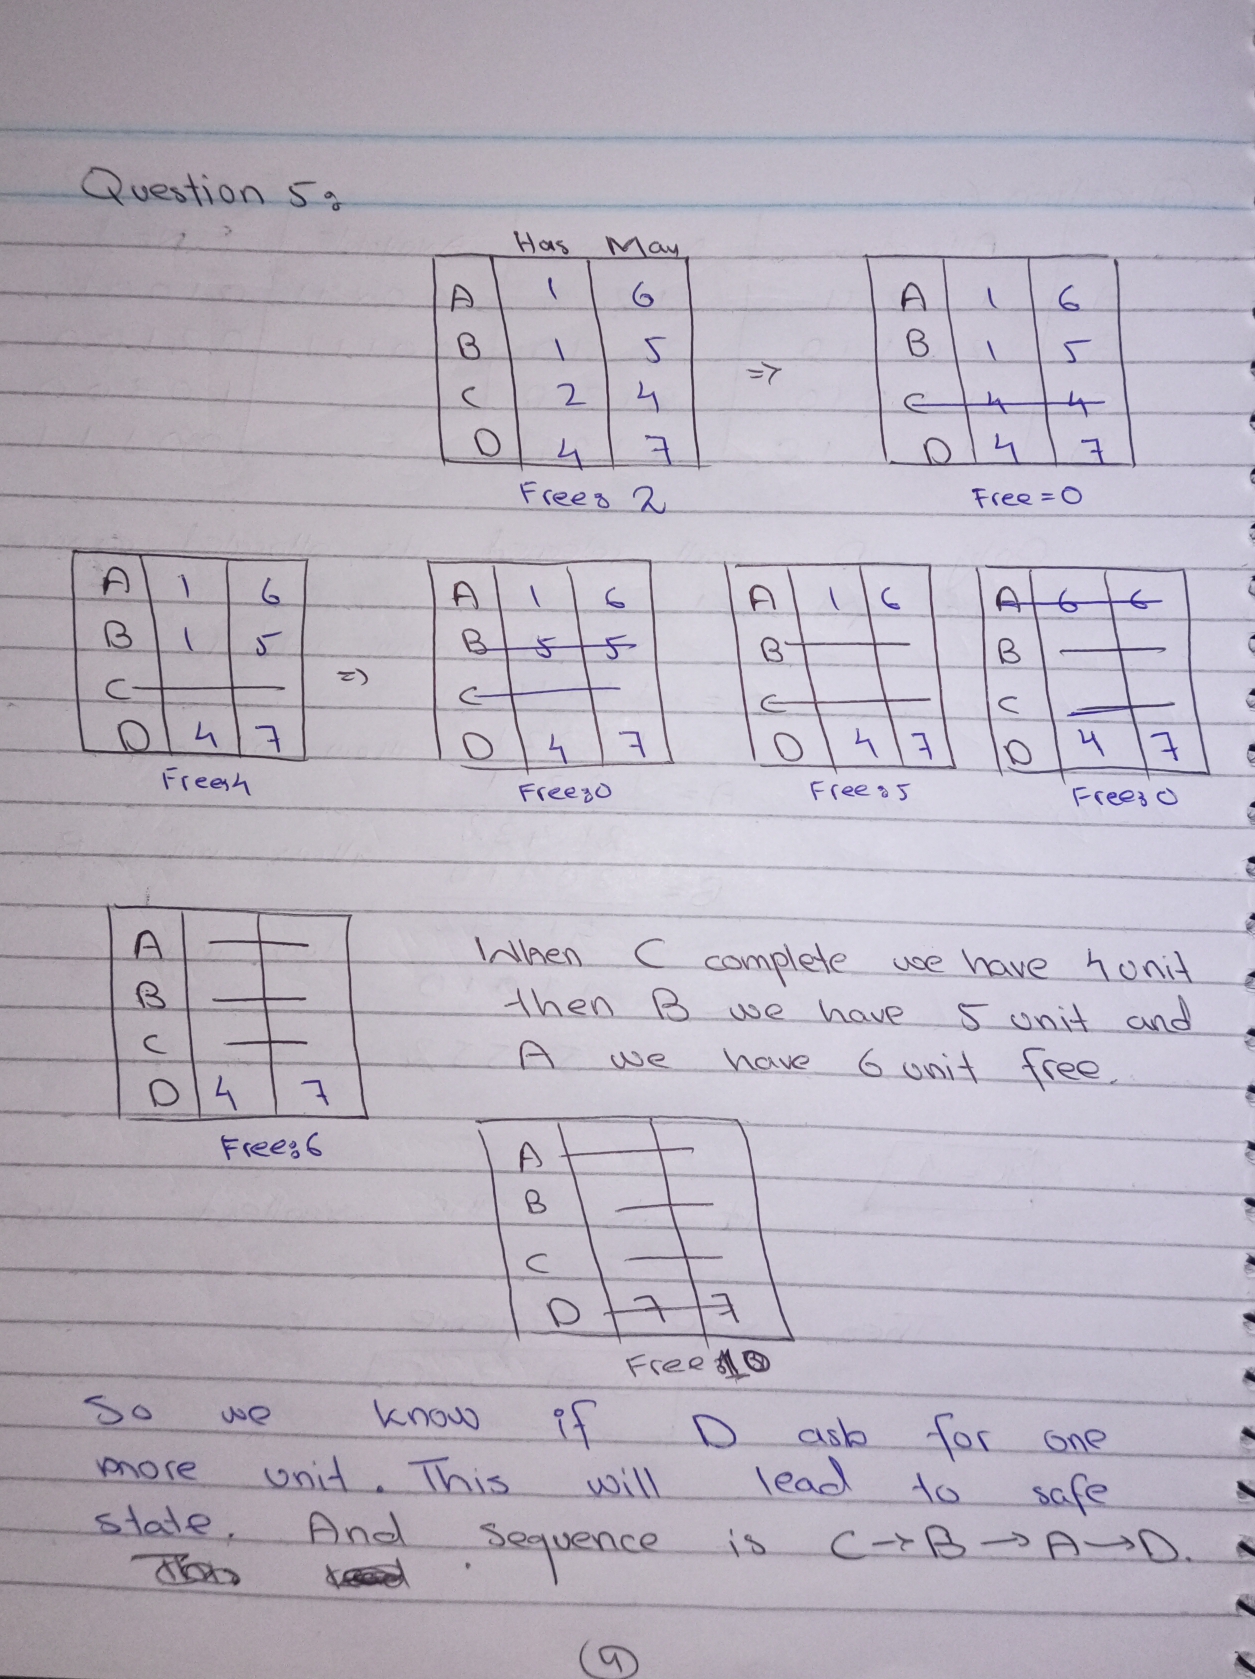 Question 5:
Has May
A 1 6
B 1 5
C 2 4
D 4 7
Free: 2
=>
A 1 6
B 1 5
C 4 4
D 4 7
Free = 0
A 1 6
B 1 5
C
D 4 7
Free: 4
=>
A 1 6
B 5 5
C
D 4 7
Free: 0
A 1 6
B
C
D 4 7
Free: 5
A 6 6
B
C
D 4 7
Free: 0
A
B
C
D 4 7
Free: 6
When C complete we have 4 unit
then B we have 5 unit and
A we have 6 unit free.
A
B
C
D 7 7
Free: 10
So we know if D ask for one
more unit. This will lead to safe
state. And sequence is C → B → A → D.
4